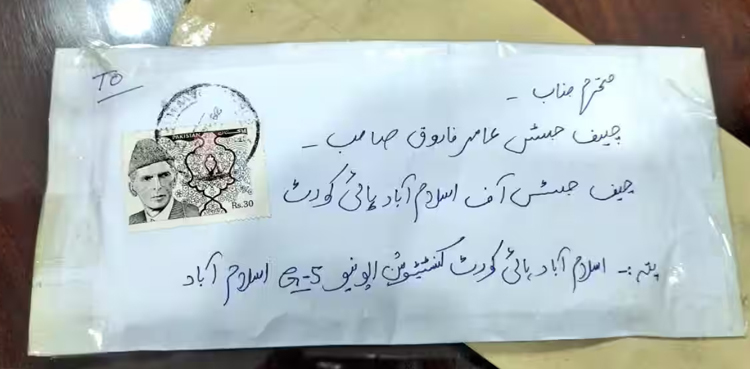 TO
PAKISTAN
Rs.30
محترم جناب -
چیف جسٹس عامر فاروق صاحب -
چیف جسٹس آف اسلام آباد ہائی کورٹ
پتہ :- اسلام آباد ہائی کورٹ کنسٹیٹیوشن ایونیو G-5 اسلام آباد